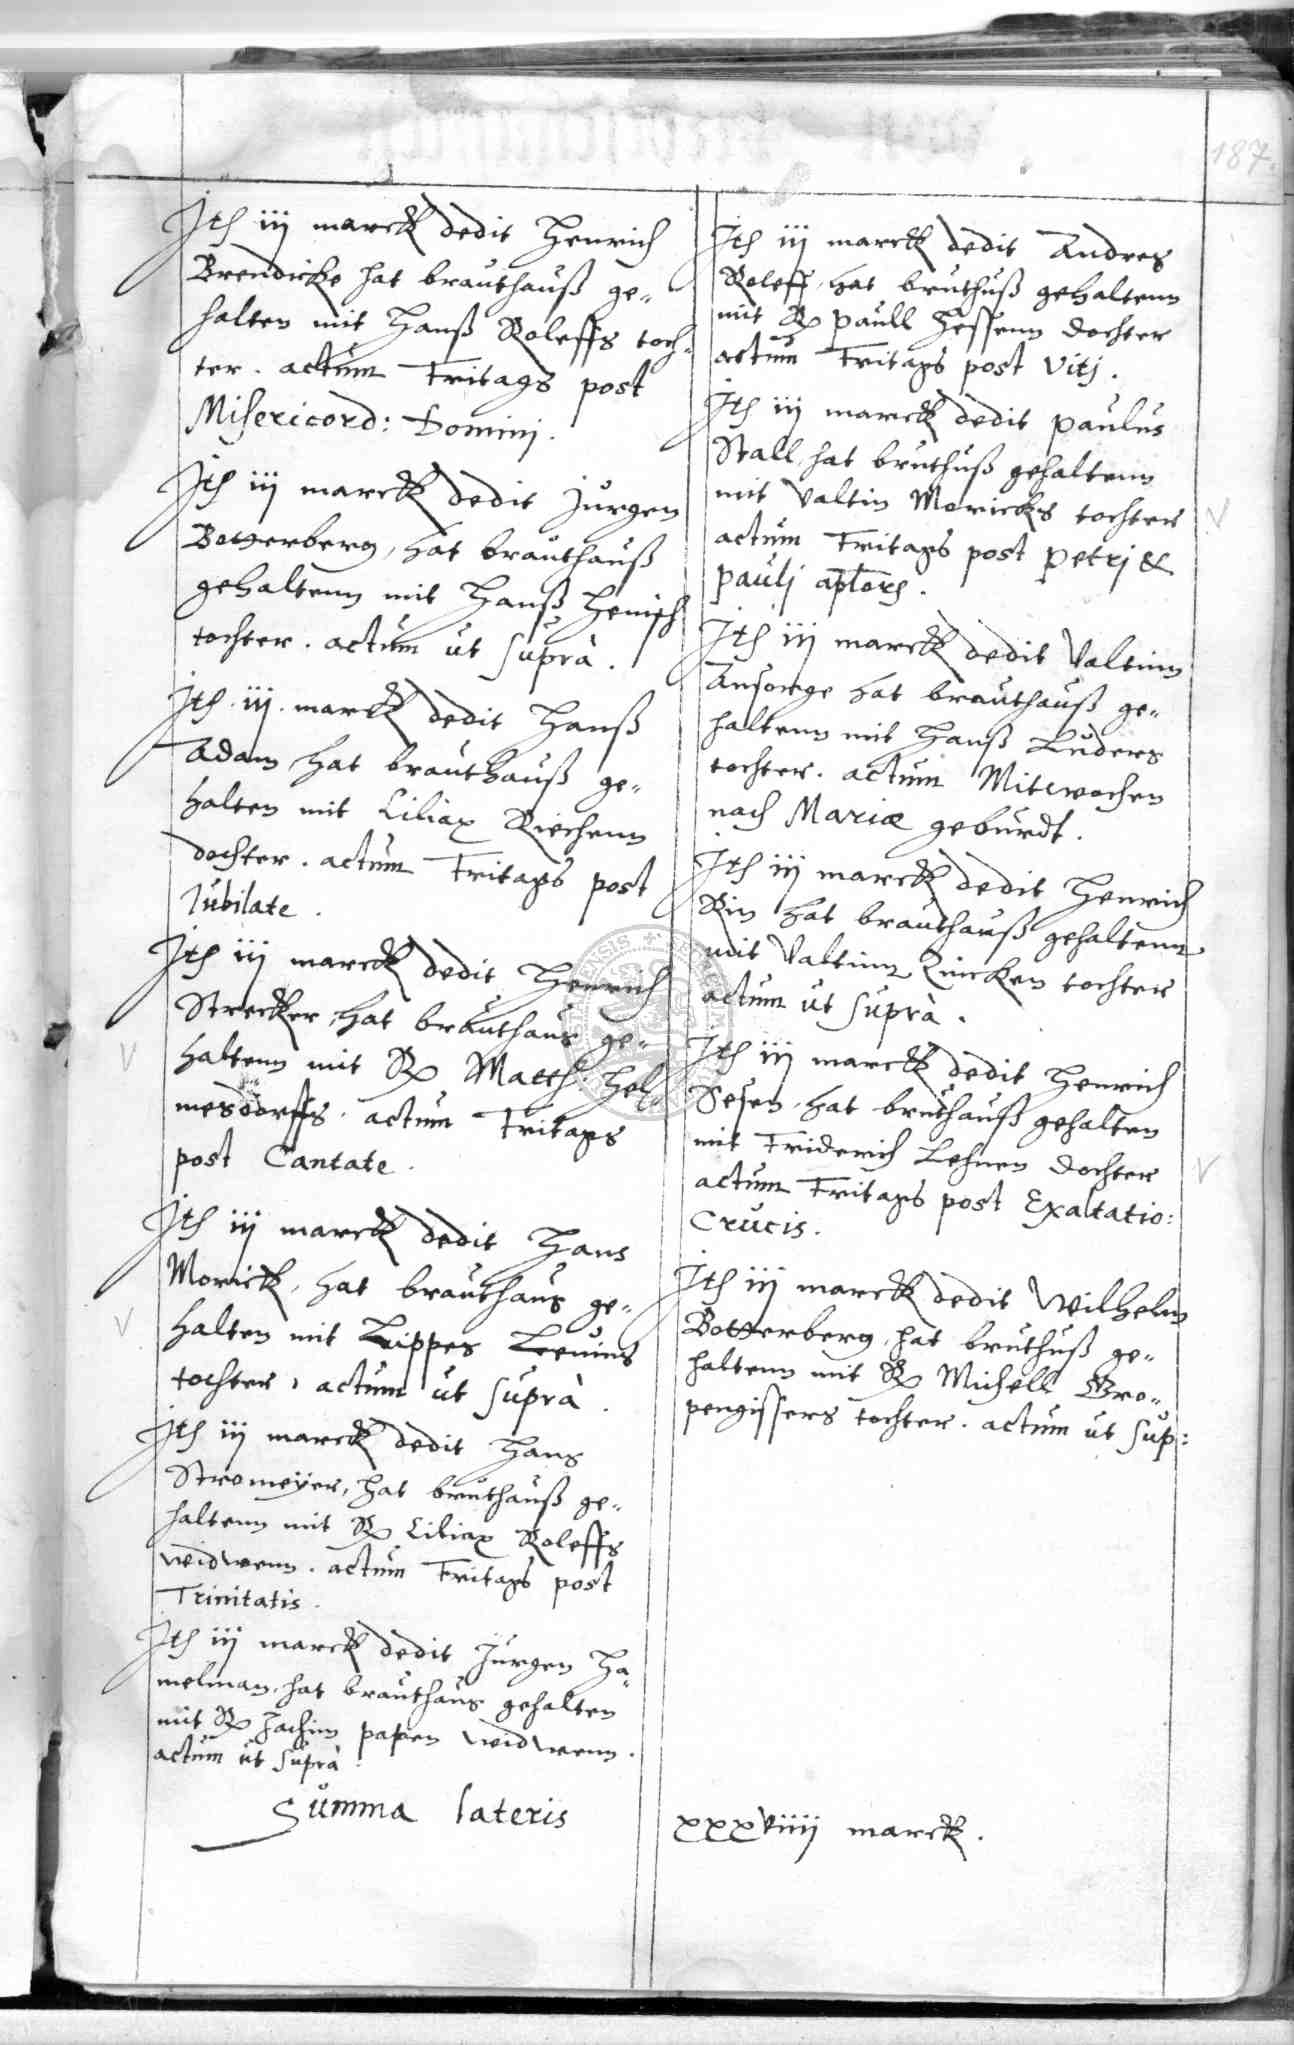 187.
Jtē iij marck dedit Henrich
Brendicke hat brauthauß ge„
halten mit Hanß Roleffs toch„
ter. actum Fritags post
Misericord: Dominj.
Jtē iij marck dedit Jurgen
Botterberg, hat brauthauß
gehaltenn mit Hanß Henisch
tochter. actum ut suprà.
Jtē. iij. marck dedit Hanß
Adam, hat brauthauß ge„
halten mit Ciliax Riechenn
dochter. actum Fritags post
Iubilate.
Jtē iij marck dedit Henrich
Strecker, hat brauthaus ge„
haltenn mit Matth:
mesdorffs. actum Fritags
post Cantate.
Jtē iij marck dedit Hans
Morick, hat brauthaus ge„
halten mit Lippes Levins
tochter, actum ut suprà.
Jtē iij marck dedit Hans
Stromeÿer, hat bruthauß ge„
haltenn mit Ciliax Roleffs
widwenn. actum Fritags post
Trinitatis.
Jtē iij marck dedit Jurgen Ha„
melman, hat brauthaus gehalten
mit Jachim papen widwenn.
actum ut suprà.
Summa lateris
Jtē iij marck dedit Andres
Roleff, hat bruthuß gehaltenn
mit paull Hessenn dochter
actum Fritags post Vitj.
Jtē iij marck dedit paulus
Stall, hat bruthuß gehaltenn
mit Valtin Morickes tochter
actum Fritags post Petrj &
paulj aplōrū.
Jtē iij marck dedit Valtinn
Ansorge hat brauthauß ge„
haltenn mit Hanß Luders
tochter. actum Mitwochen
nach Mariæ geburdt.
Jtē iij marck dedit Henrich
Rin hat brauthauß gehaltenn
mit Valtinn Zincken tochter
actum ut suprà.
Jtē iij marck dedit Henrich
Sesen, hat bruthauß gehalten
mit Friderich Lehnen dochter
actum Fritags post Exaltatio:
Crucis.
Jtē iij marck dedit Wilhelm
Botterberg, hat bruthuß ge„
haltenn mit Michell Gro„
pengissers tochter. actum ut sup:
xxxviiij marck.